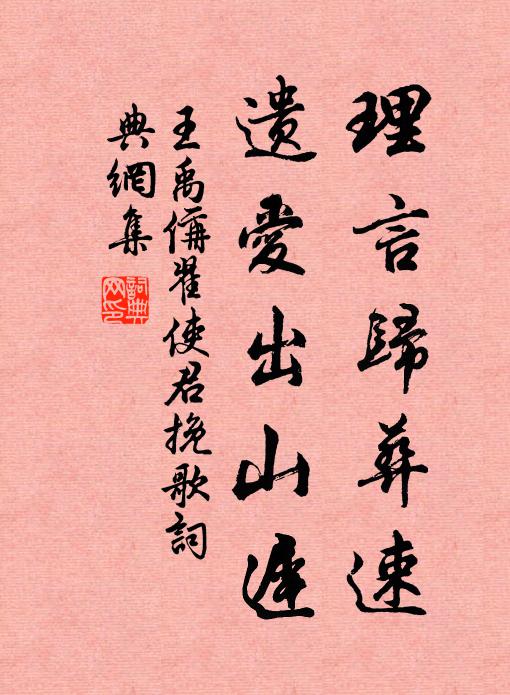 理言歸葬速
遺愛出山遲
王禹偁翟使君挽歌詞
典網集
詞典网印